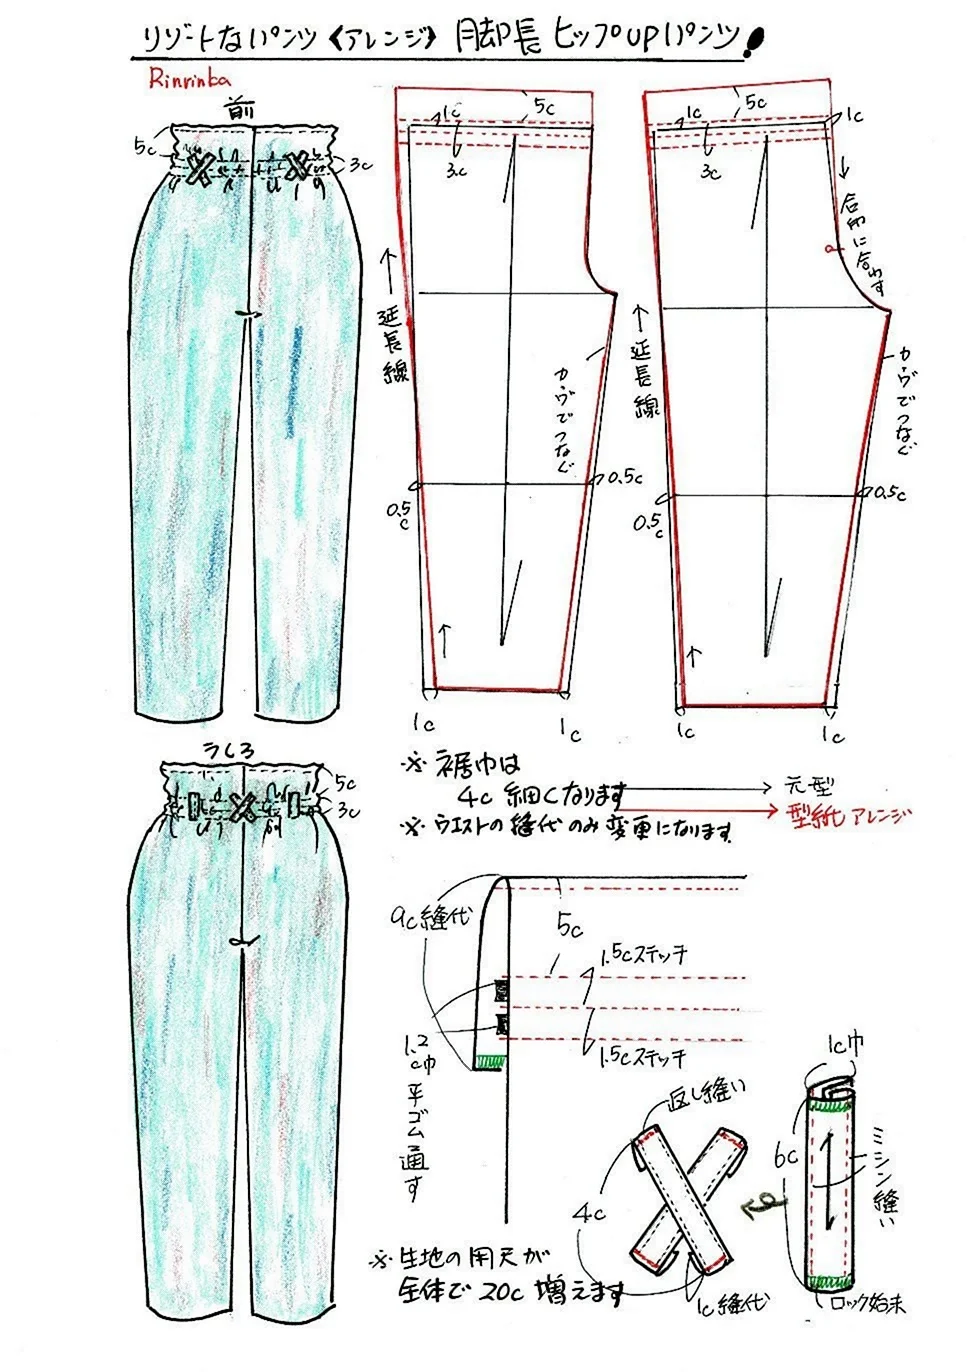 リゾートなパンツ《アレンジ》 脚長ヒップUPパンツ!
Rinrinka
前
5c
3c
1c
5c
3c
↑延長線
カーヴでつなぐ
0.5c
0.5c
1c
1c
1c
5c
1c
3c
合印に合わす
↑延長線
カーヴでつなぐ
0.5c
0.5c
1c
1c
うしろ
5c
3c
※ 裾巾は
4c 細くなります
※ ウエストの縫代のみ変更になります
元型
型紙アレンジ
9c縫代
5c
1.5cステッチ
1.5cステッチ
1.2c巾平ゴム通す
返し縫い
4c
1c縫代
1c巾
6c
ミシン縫い
ロック始末
※ 生地の用尺が
全体で20c 増えます